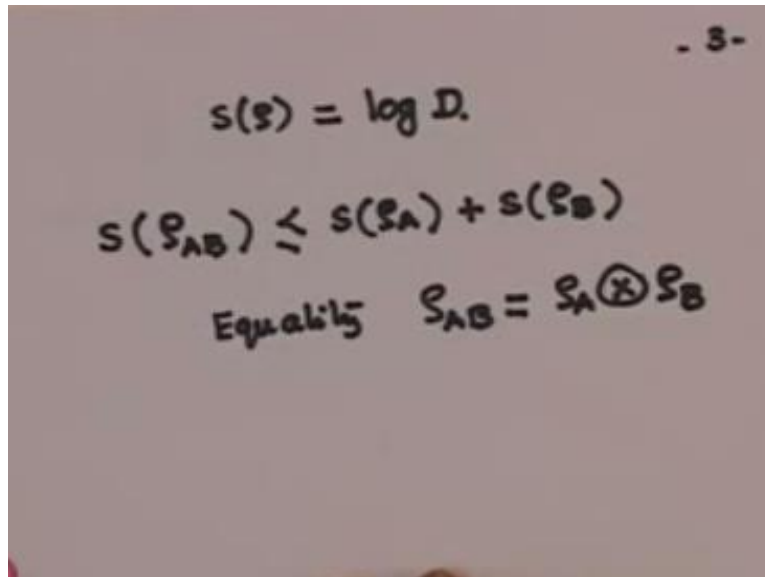 - 3-
S(ρ) = log D.
S(ρ_AB) ≤ S(ρ_A) + S(ρ_B)
Equality ρ_AB = ρ_A ⊗ ρ_B